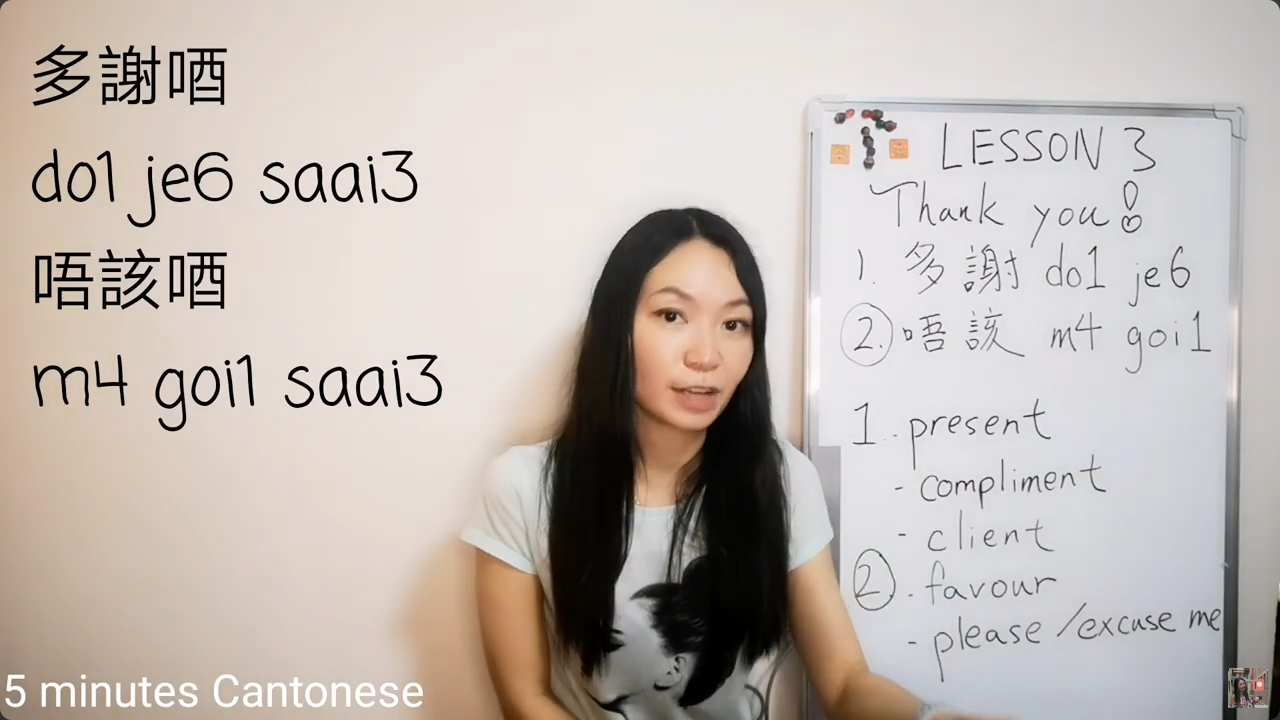 多謝哂
do1 je6 saai3
唔該哂
m4 goi1 saai3
LESSON 3
Thank you!
1. 多謝 do1 je6
2. 唔該 m4 goi1
1. present
- compliment
- client
2. favour
- please/excuse me
5 minutes Cantonese